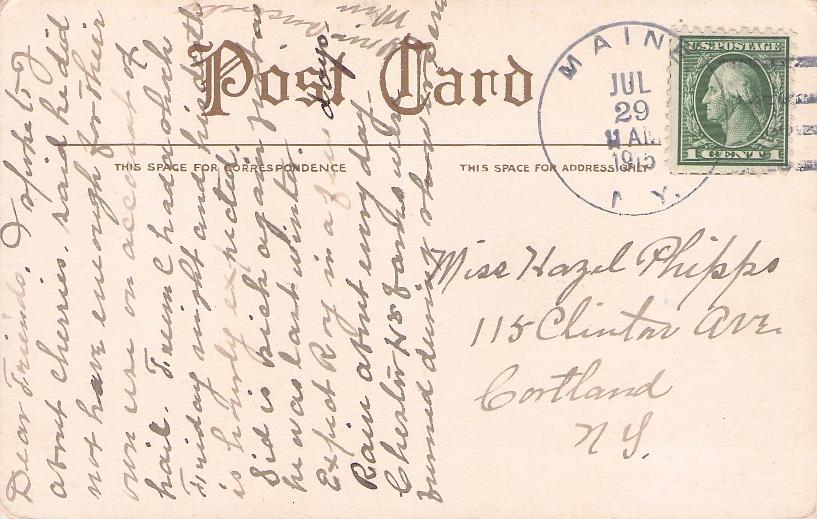 Post Card
THIS SPACE FOR CORRESPONDENCE
THIS SPACE FOR ADDRESS ONLY
MAINE
JUL
29
11 AM
1915
N.Y.
U.S. POSTAGE
1 CENT 1
Miss Hazel Phipps
115 Clinton Ave.
Cortland
N.Y.
Dear Friends, I spoke to J
about cherries, said he did
not have enough for their
own use on account of
hail. Truim C had
Friday night and his
is hourly expected.
Sid is sick again just as
he was last winter.
Expect Roy in a few days.
Rain about every day.
Chester barks were
burned during shower